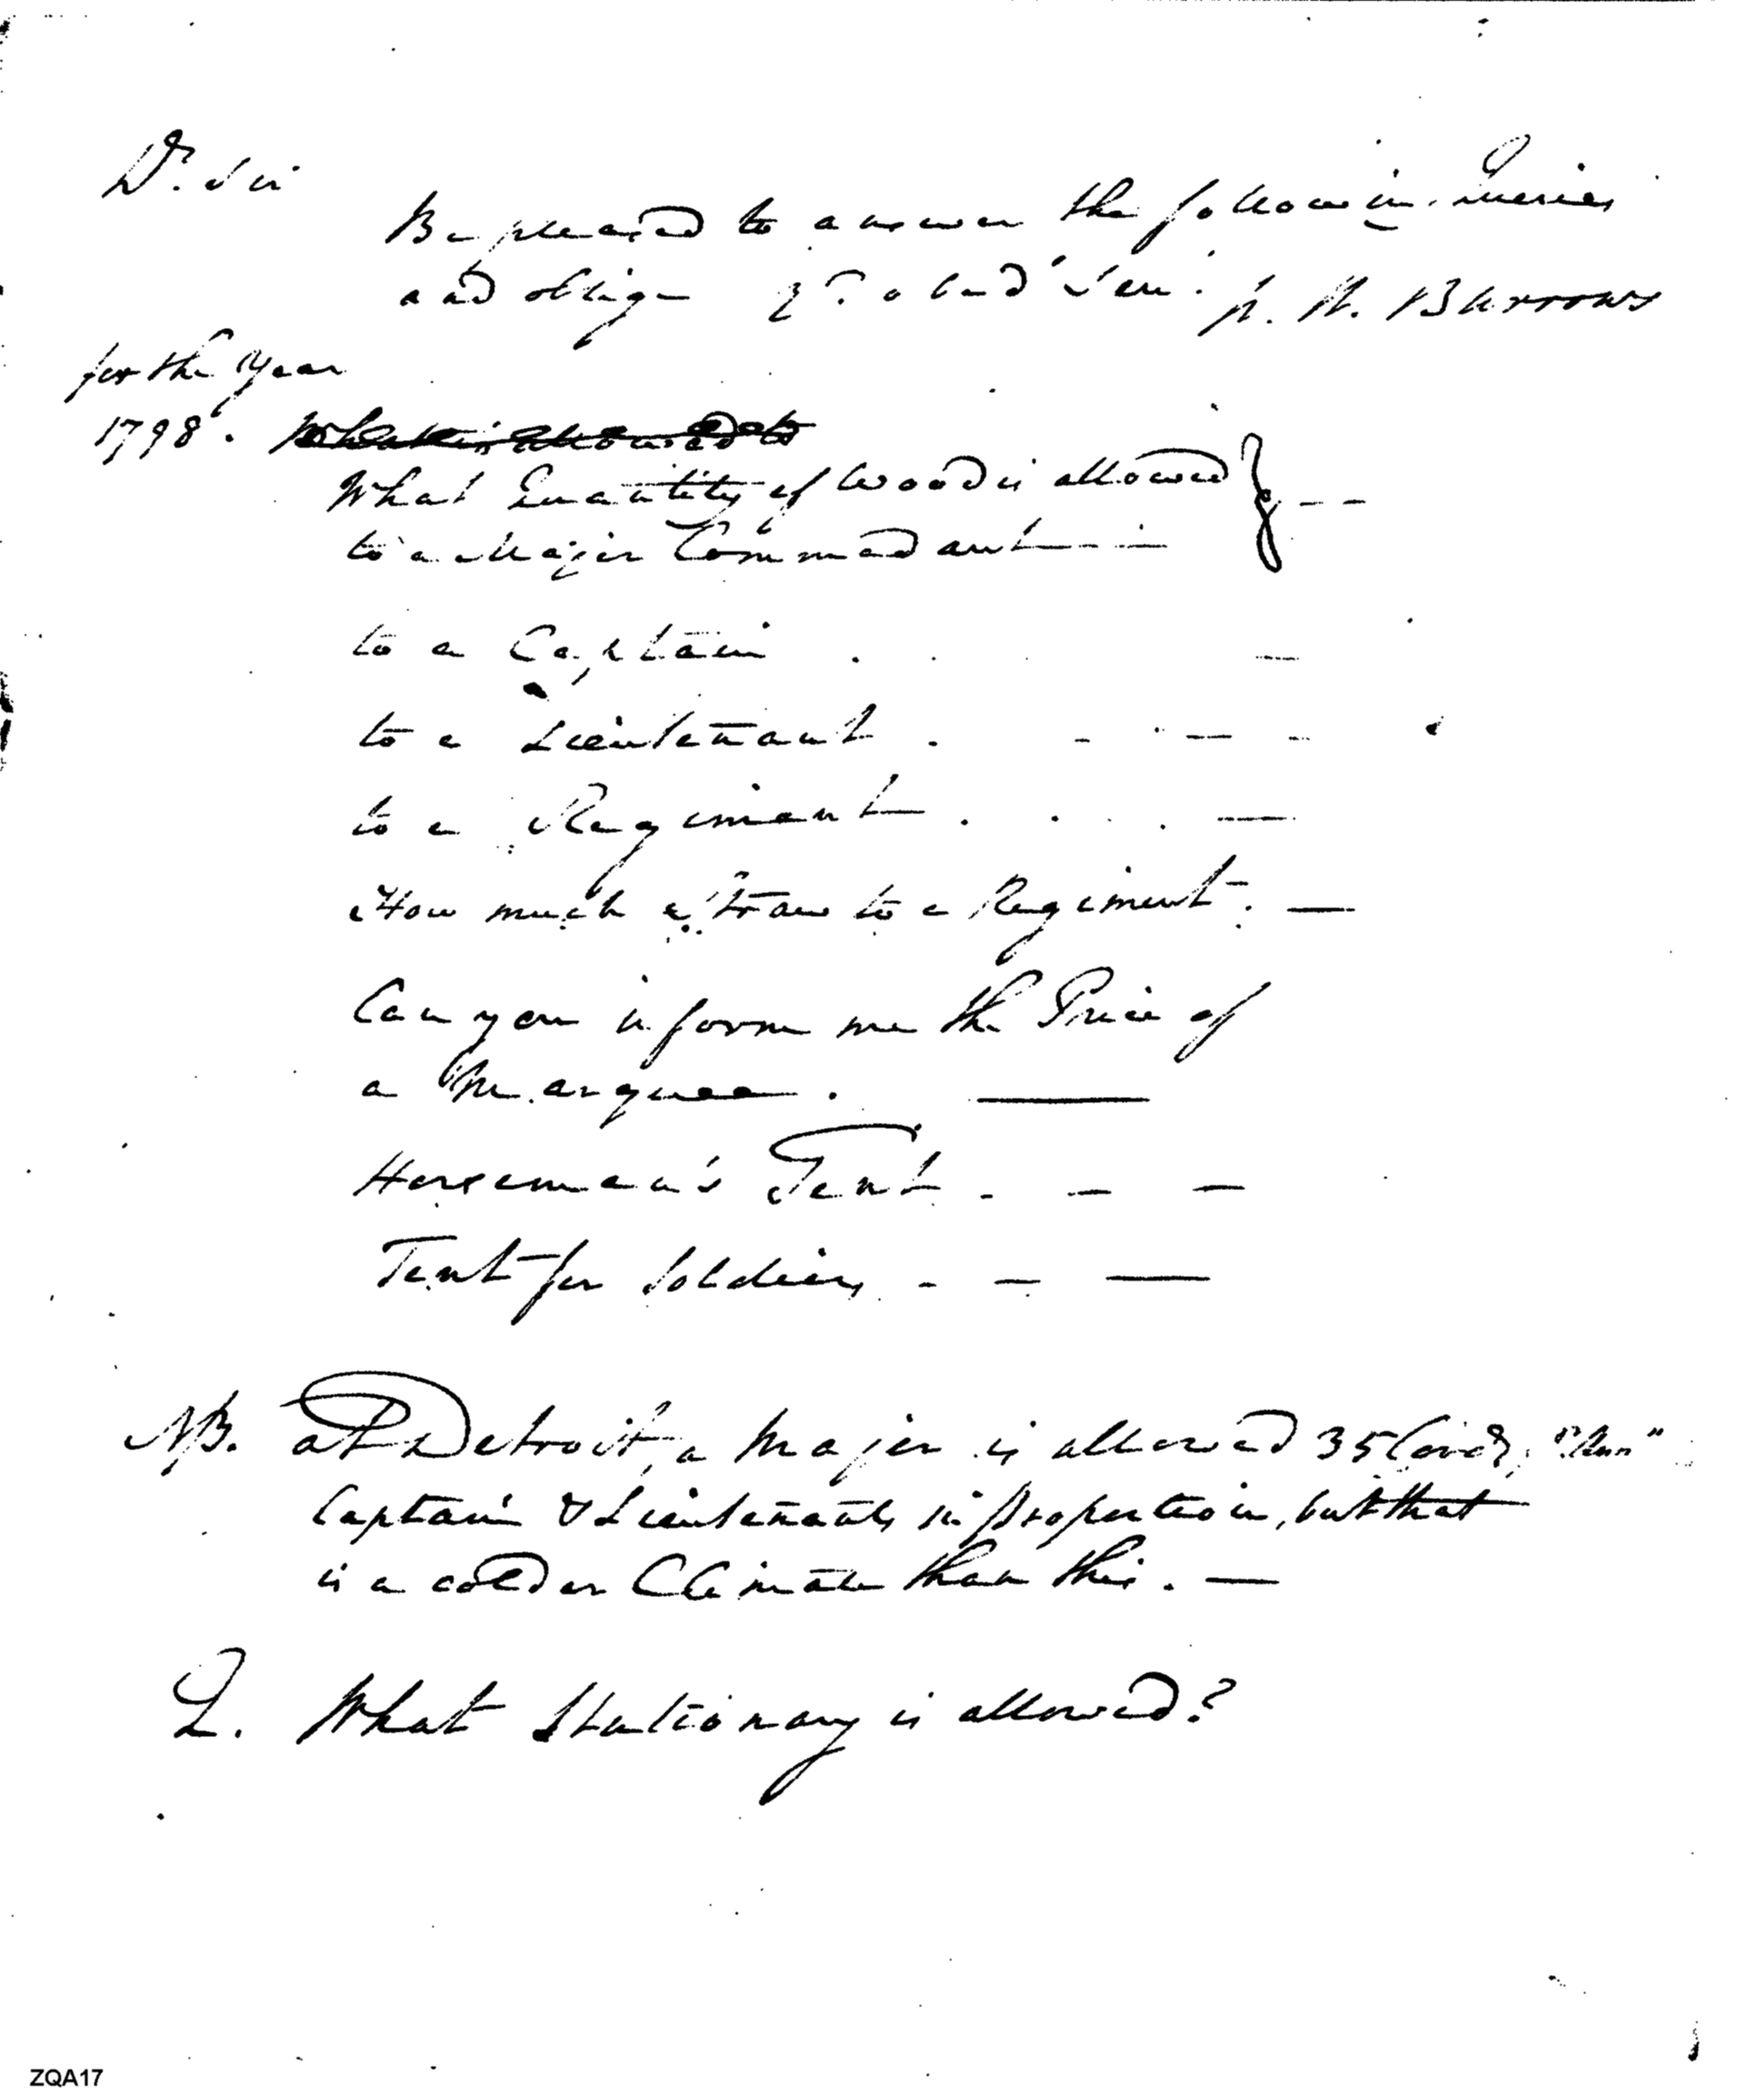 Dr. Sir
Be pleased to answer the following Queries
and oblige Yr. obed Serv. W. W. Burrows
for the Year
1798. What is allowed to
What Quantity of Wood is allowed
to a Major Commedant
to a Captain
to a Lieutenant
to a Regiment
How much Straw to a Regiment
Can you inform me the Price of
a Marquee.
Horseman's Tent
Tent for Soldiers
NB. at Detroit, a Major is allowed 35 Cords,
Captain & Lieutenants in proportion, but that
is a colder Climate than this.
Q. What Stationary is allowed?
ZQA17